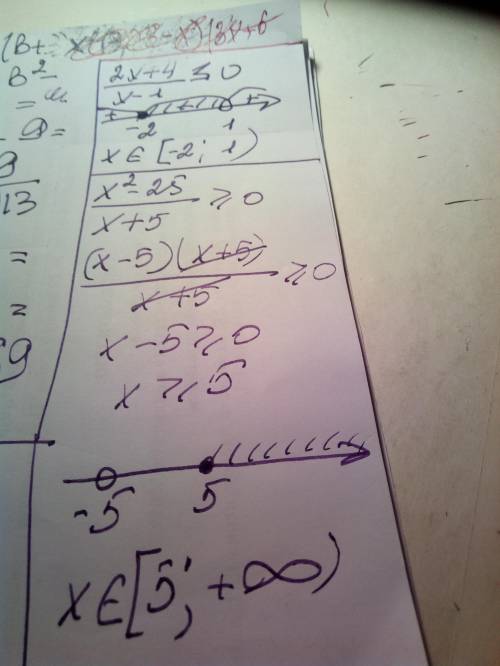 B² -
=
9 =
9
13
=
=
69
2x+4 / x-1 ≤ 0
+ - +
-2 1
x ∈ [-2; 1)
x² - 25 / x+5 ≥ 0
(x-5)(x+5) / x+5 ≥ 0
x - 5 ≥ 0
x ≥ 5
-5 5
x ∈ [5; +∞)